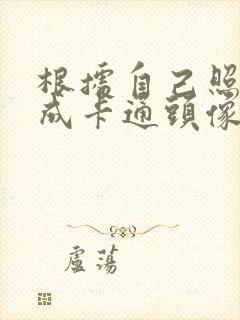 根據自己照
成卡通頭像
盧蕩